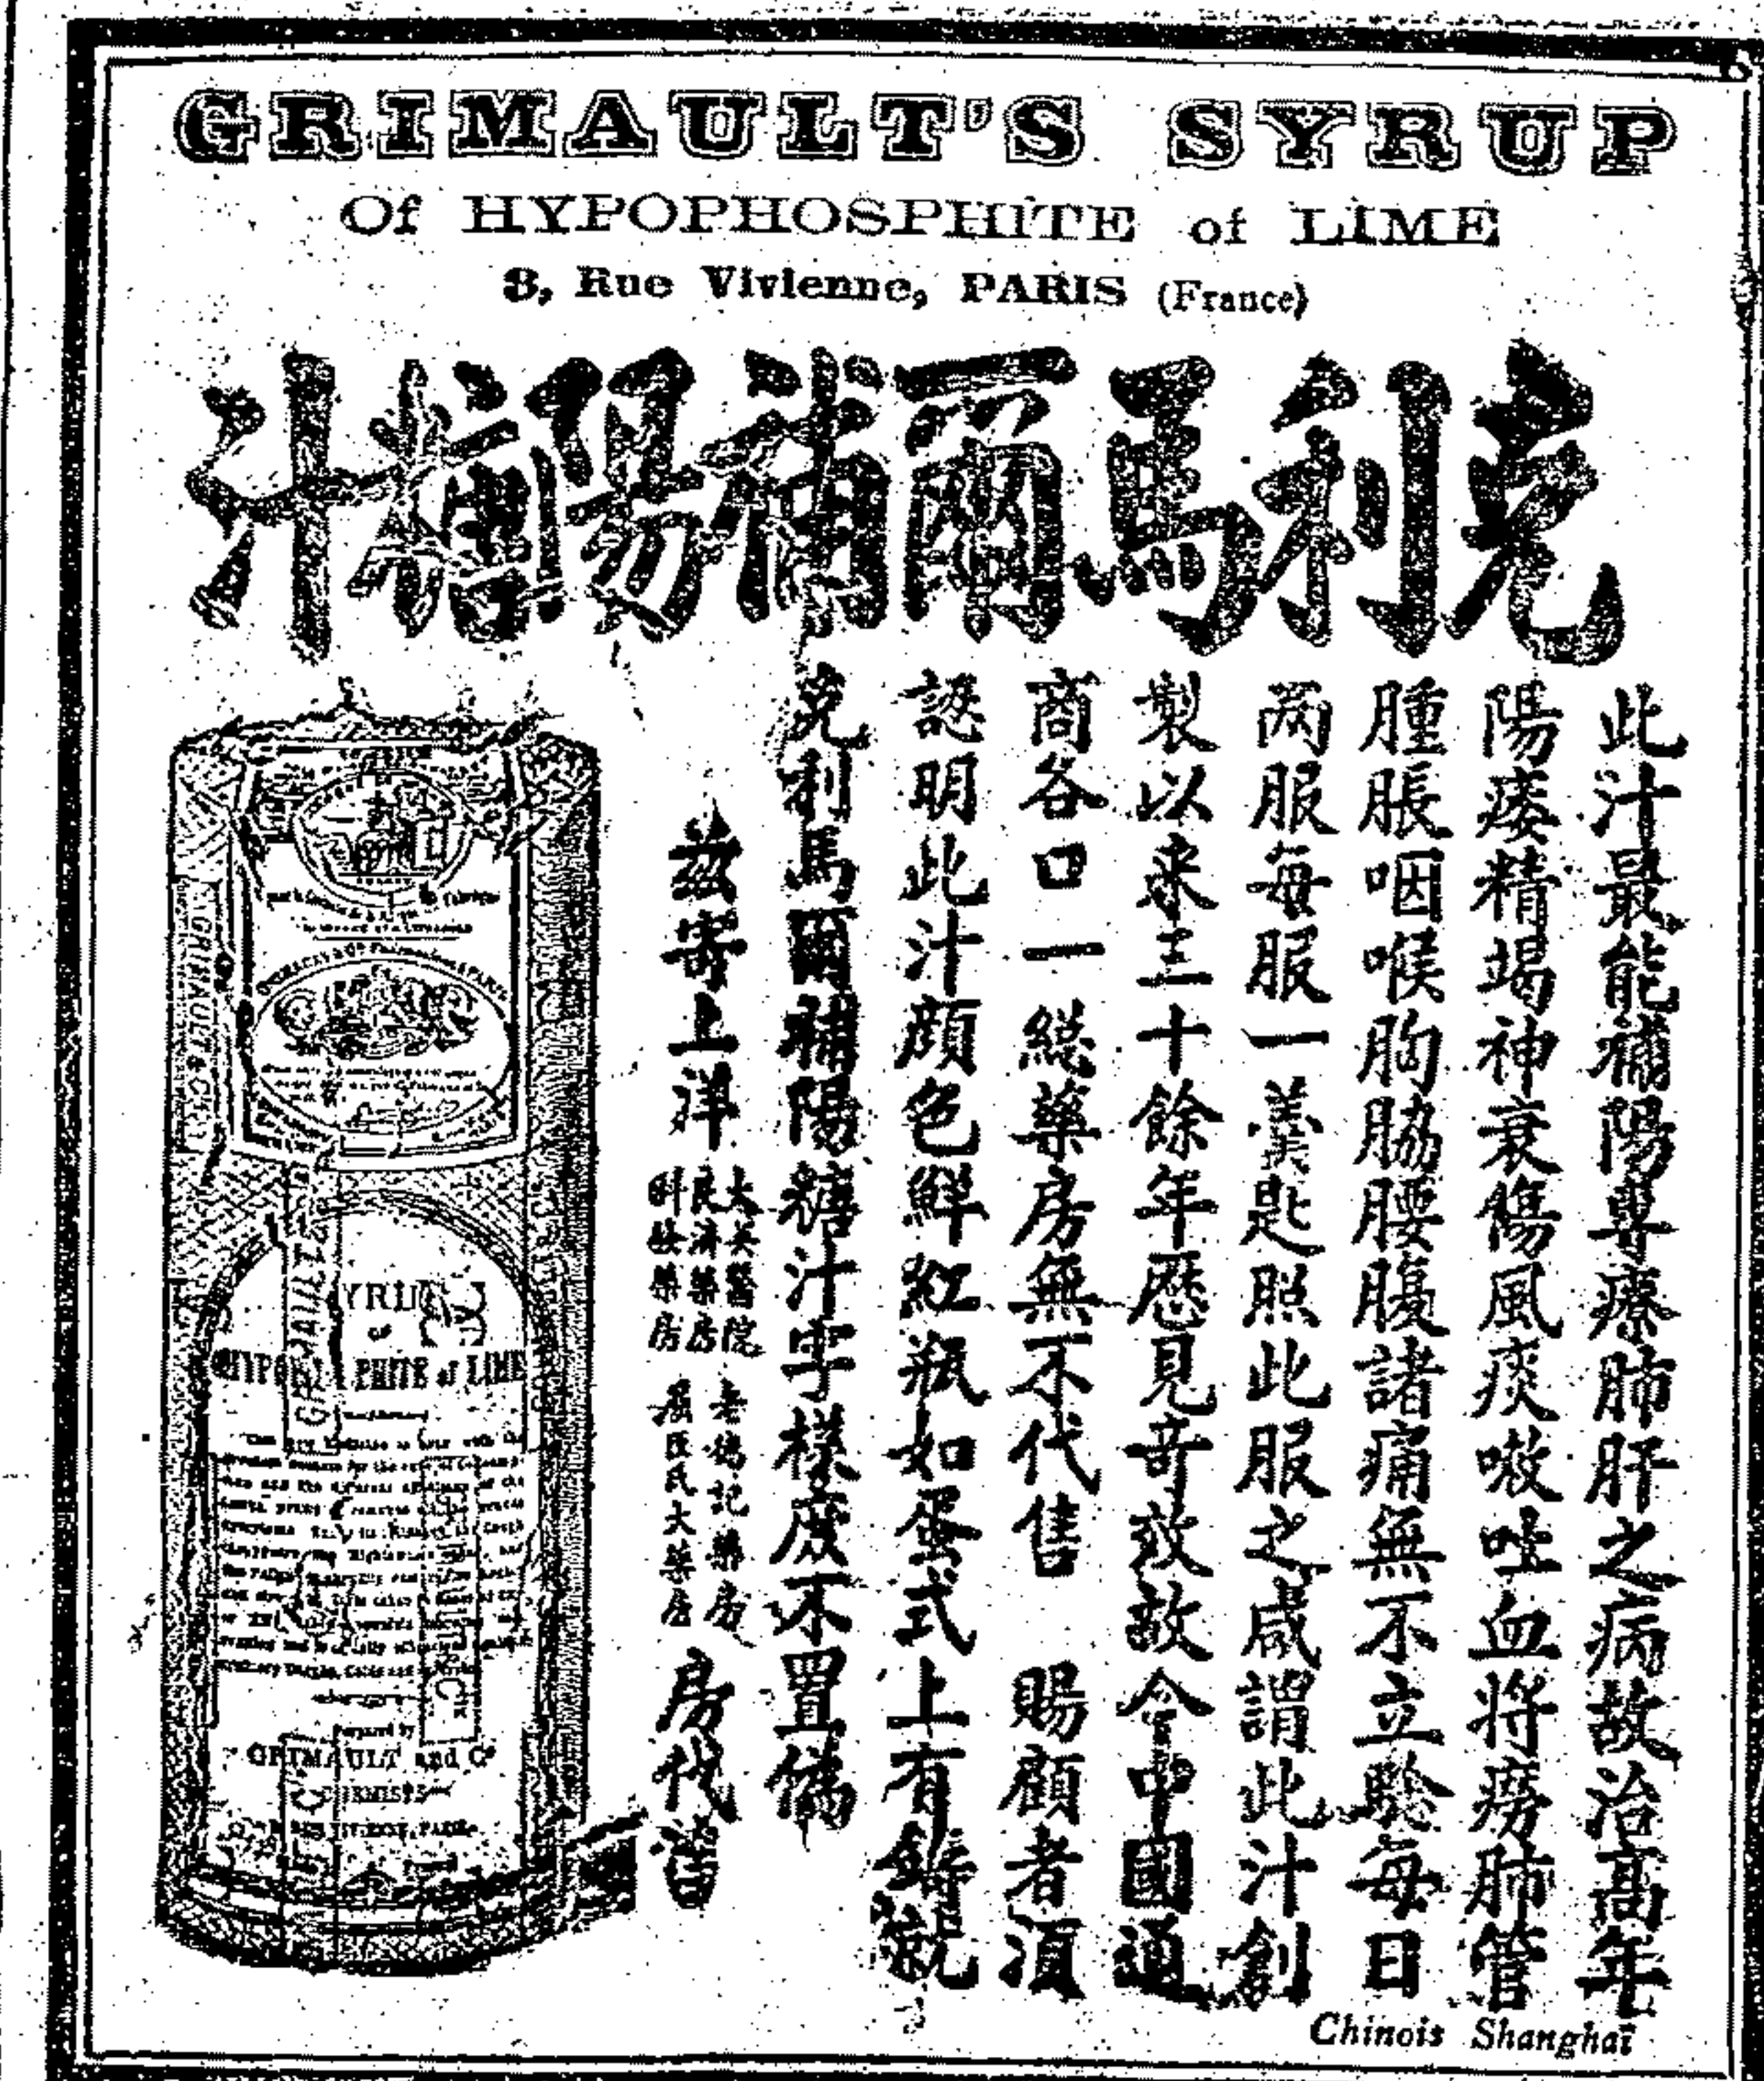 GRIMAULT'S SYRUP
Of HYPOPHOSPHITE of LIME
8, Rue Vivienne, PARIS (France)
克利馬爾補陽糖汁
此汁最能補陽專療肺肝之病故治高年
陽痿精竭神衰傷風痰嗽吐血將癆肺管
腫脹咽喉胸脇腰腹諸痛無不立驗每日
两服每服一羹匙照此服之咸謂此汁創
製以來三十餘年歷見奇效故今中國通
商各口一總藥房無不代售 賜顧者須
認明此汁顔色鮮紅瓶如蛋式上有鑄就
克利馬爾補陽糖汁字樣庶不置僞
茲寄上洋
大英醫院
民濟藥房
科發藥房
老德記藥房
屈臣氏大藥房
房代售
GRIMAULT & C
SYRUP
OF
HYPOPHOSPHITE of LIME
Prepared by
GRIMAULT and Co
CHEMISTS
Chinois Shanghaï